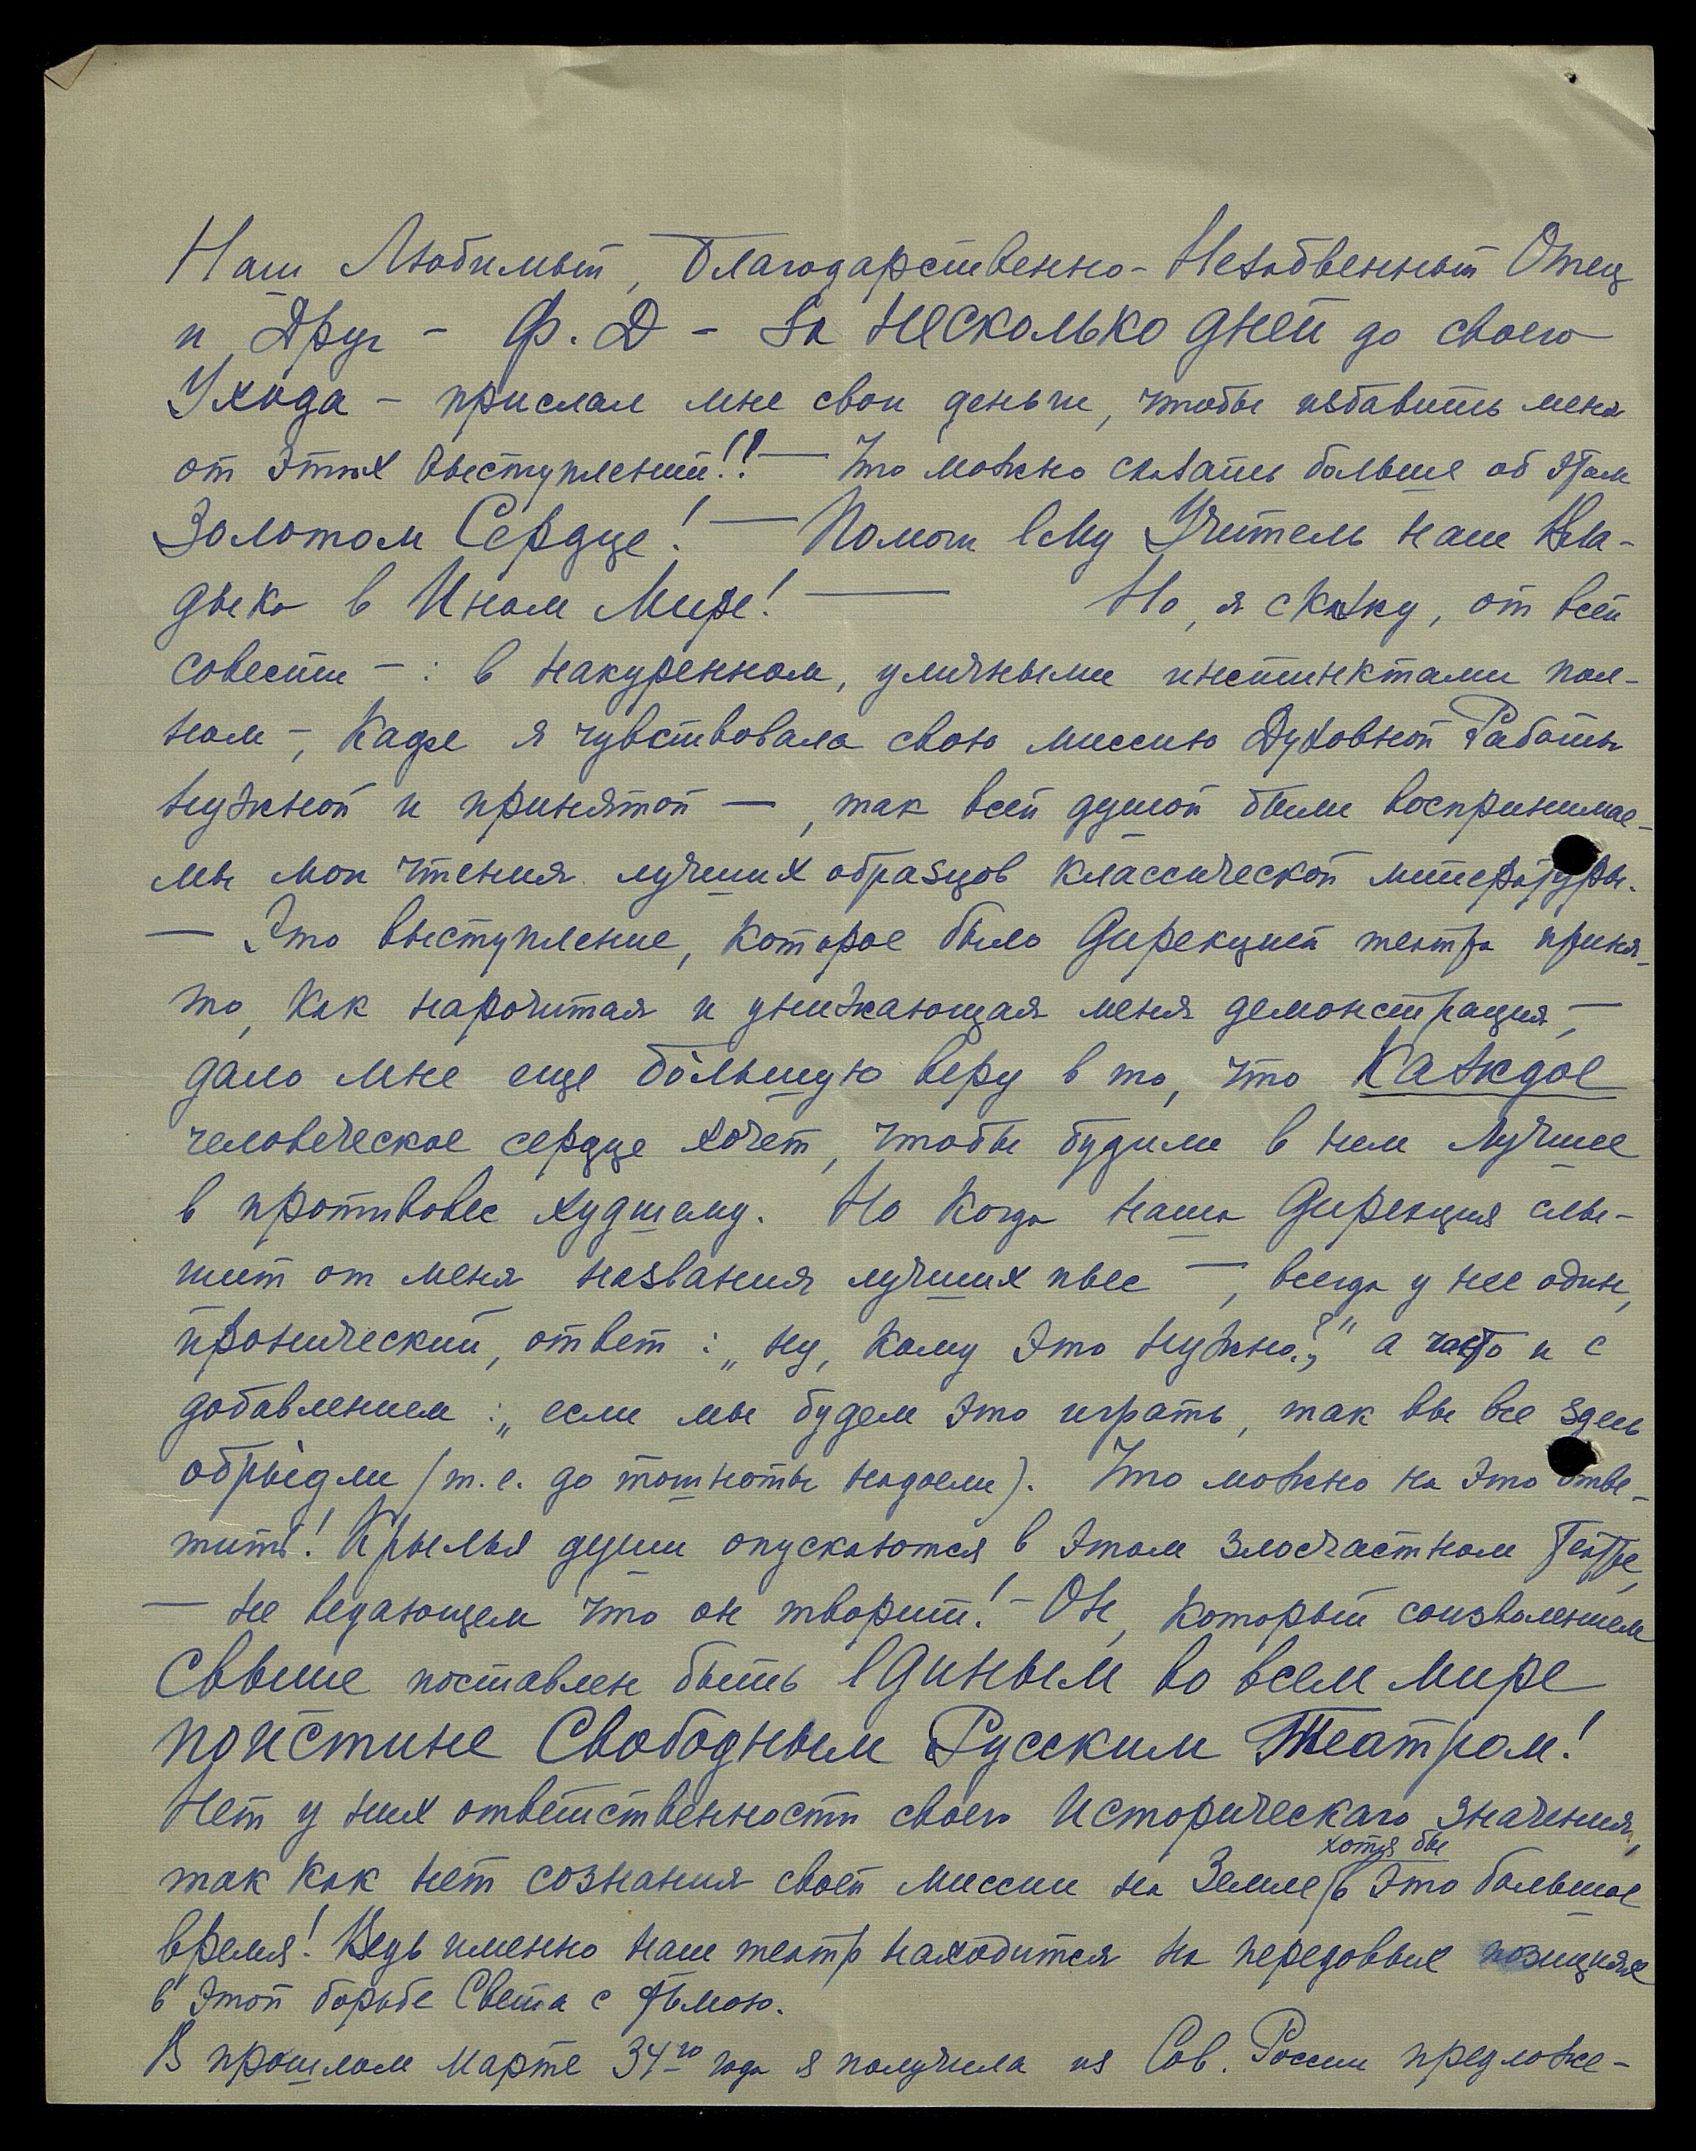 Наш Любимый, Благодарственно-Незабвенный Отец
и Друг – Ф. Д – за несколько дней до своего
Ухода – прислал мне свои деньги, чтобы избавить меня
от этих выступлений!! — Что можно сказать больше об этом
Золотом Сердце! — Помоги Ему Учитель наш Вла-
дыка в Ином Мире! — Но, я скажу, от всей
совести – : в накуренном, уличными инстинктами пол-
ном –, кафе я чувствовала свою миссию Духовной Работы
нужной и принятой —, так всей душой были воспринимае-
мы мои чтения лучших образцов классической литературы.
— Это выступление, которое было Дирекцией театра приня-
то, как нарочитая и унижающая меня демонстрация, –
дало мне еще бо́льшую веру в то, что Каждое
человеческое сердце хочет, чтобы будили в нем лучшее
в противовес худшему. Но когда наша Дирекция слы-
шит от меня названия лучших пьес —, всегда у нее один,
иронический, ответ : „ну, кому это нужно?," а часто и с
добавлением : „если мы будем это играть, так вы все здесь
обрыдли (т. е. до тошноты надоели). Что можно на это отве-
тить! Крылья души опускаются в этом злосчастном Театре,
— не ведающем что он творит! – Он, который соизволением
Свыше поставлен быть Единым во всем мире
поистине Свободным Русским Театром!
Нет у них ответственности своего Исторического значения,
так как нет сознания своей миссии на Земле хотя бы в Это большое
время! Ведь именно наш театр находится на передовых позициях
в этой борьбе Света с тьмою.
В прошлом Марте 34го года я получила из Сов. России предложе-